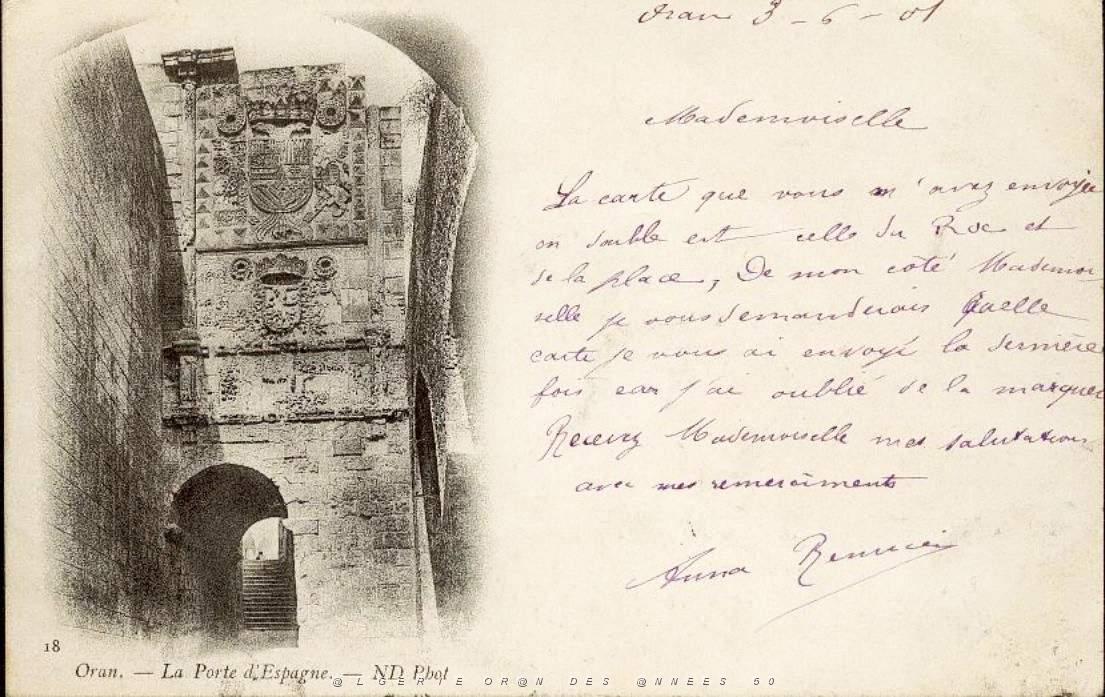 Oran 3 - 6 - 01
Mademoiselle
La carte que vous m'avez envoyée
en double est celle du Roc et
de la place, De mon côté Mademoi
selle je vous demanderais Quelle
carte je vous ai envoyé la dernière
fois car j'ai oublié de la marquer
Recevez Mademoiselle mes salutations
avec mes remerciments
Anna
18
Oran. — La Porte d'Espagne. — ND Phot
@LGERIE OR@N DES @NNEES 50